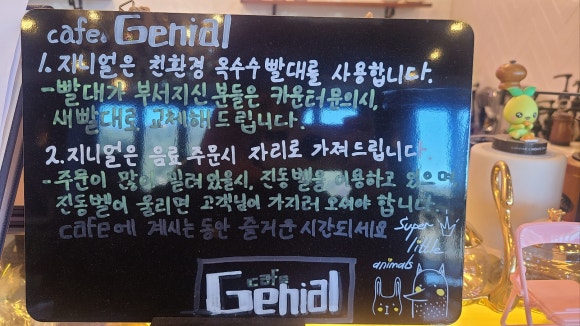 cafe. Genial
1. 지니얼은 친환경 옥수수 빨대를 사용합니다.
-빨대가 부서지신 분들은 카운터문의시,
새빨대로 교체해드립니다.
2. 지니얼은 음료 주문시 자리로 가져드립니다
-주문이 많이 밀려있을시, 진동벨을 이용하고 있으며
진동벨이 울리면 고객님이 가지러 오셔야 합니다.
cafe에 계시는동안 즐거운 시간되세요
Super
little
animals
cafe
Genial